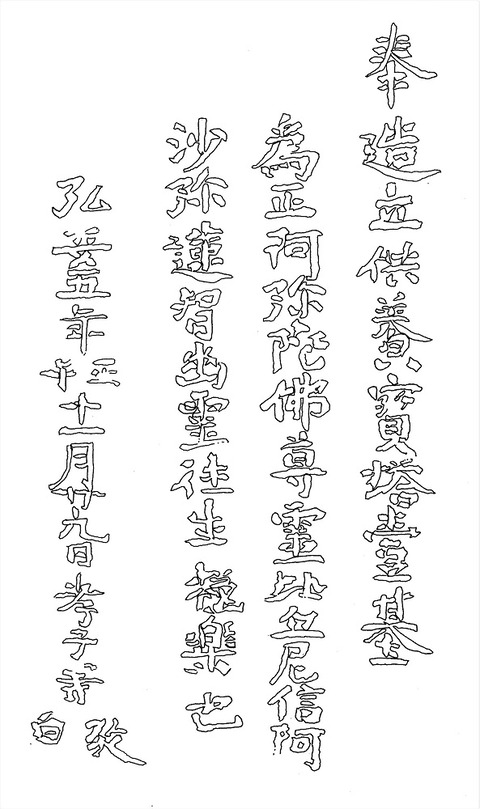 奉造立供養寶塔壹基
為正阿弥陀佛尊霊比丘尼信阿
沙弥蓮智幽霊往生極樂也
弘安五年壬午十一月廿九日孝子等敬白